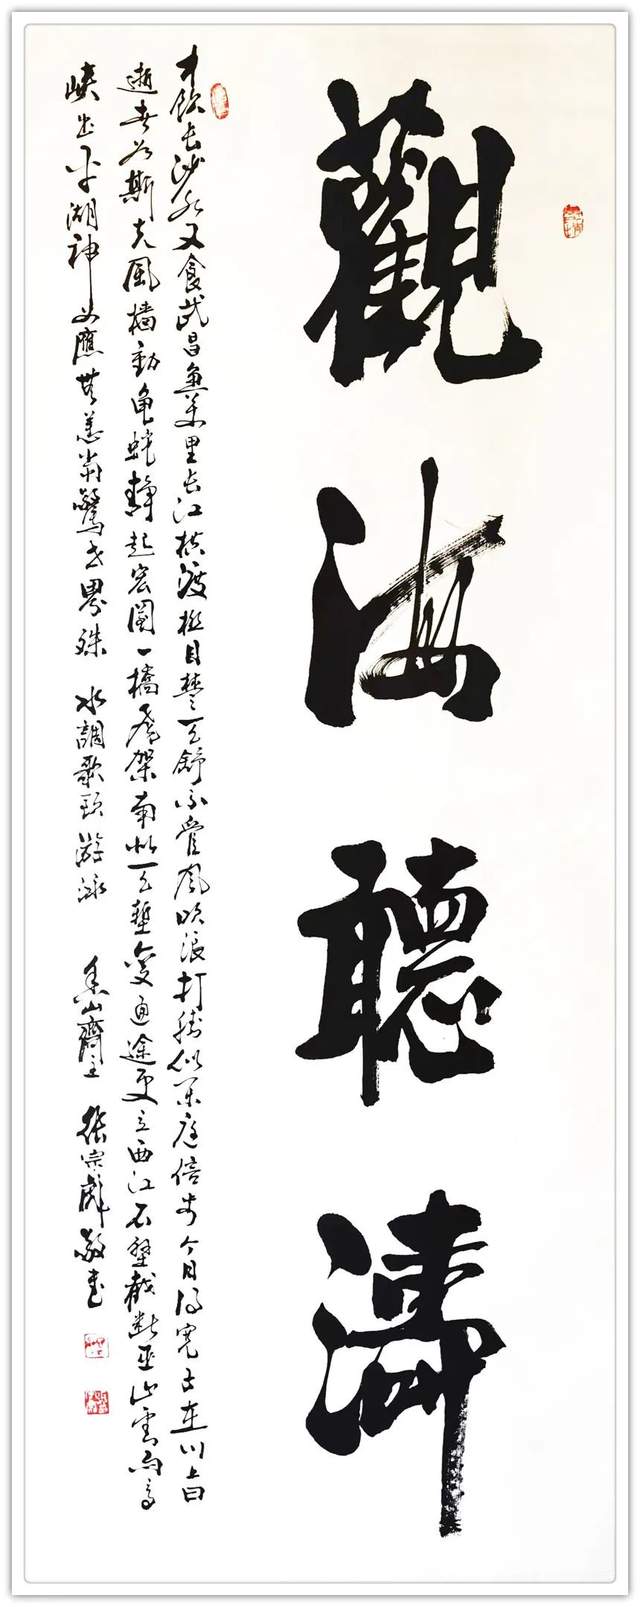 觀海聽濤
才飲長沙水又食武昌魚萬里長江橫渡極目楚天舒不管風吹浪打勝似閑庭信步今日得寬子在川上曰
逝者如斯夫風檣動龜蛇靜起宏圖一橋飛架南北天塹變通途更立西江石壁截斷巫山雲雨高
峽出平湖神女應無恙當驚世界殊 水調歌頭游泳 山齋主 張宗彪敬書